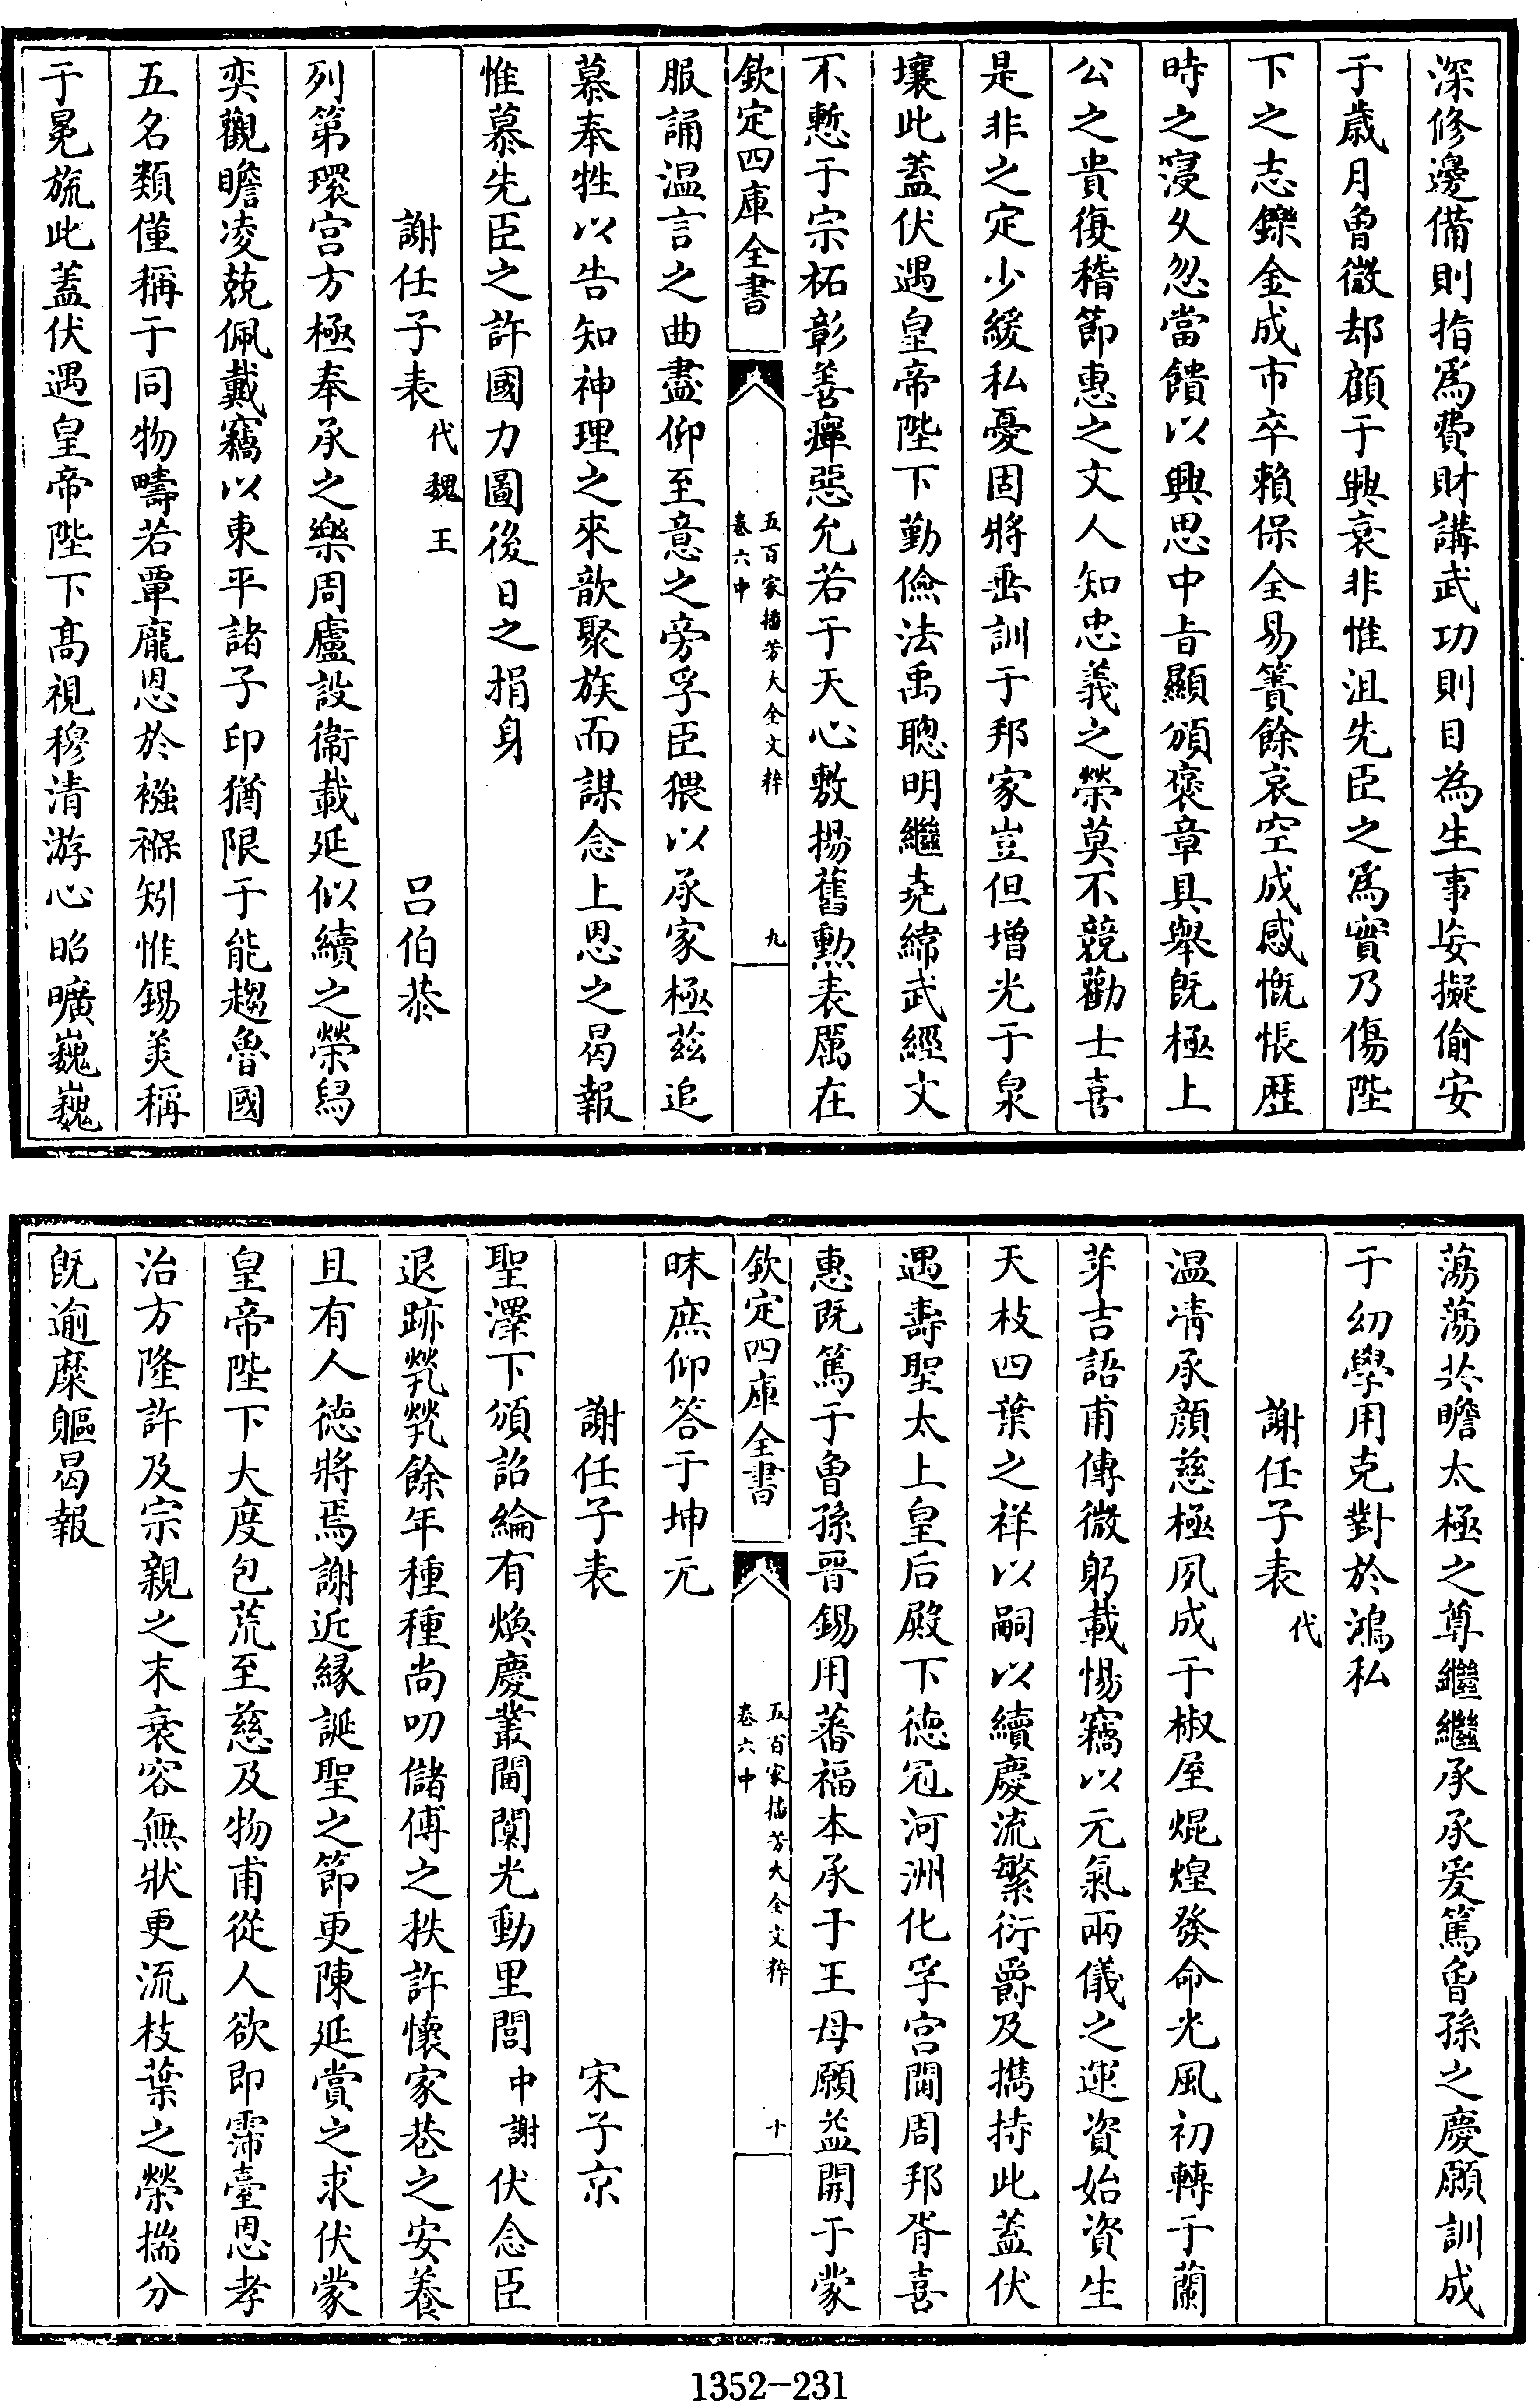 深修邊備則指爲費財講武功則目為生事妄擬偷安
于歲月曾微却顧于興衰非惟沮先臣之爲實乃傷陛
下之志鑠金成市卒賴保全易簀餘哀空成感慨悵歴
時之寖久忽當饋以興思中㫖顯頒褒章具舉既極上
公之貴復稽節惠之文人知忠義之榮莫不競勸士喜
是非之定少緩私憂固將垂訓于邦家豈但增光于泉
壤此蓋伏遇皇帝陛下勤儉法禹聰明繼堯緯武經文
不慙于宗祏彰善癉惡允若于天心敷揚舊勲表厲在
欽定四庫全書
五百家播芳大全文粹
卷六中
九
服誦温言之曲盡仰至意之旁孚臣猥以承家極兹追
慕奉牲以告知神理之來歆聚族而謀念上恩之曷報
惟慕先臣之許國力圖後日之捐身
謝任子表代魏王 吕伯恭
列第環宫方極奉承之樂周廬設衞載延似續之榮舄
奕觀瞻凌兢佩戴竊以東平諸子印猶限于能趨魯國
五名類僅稱于同物疇若覃龐恩於襁褓矧惟錫美稱
于冕旒此蓋伏遇皇帝陛下髙視穆清游心昭曠巍巍
蕩蕩共瞻太極之尊繼繼承承爰篤曾孫之慶願訓成
于幼學用克對於鴻私
謝任子表代
温凊承顔慈極夙成于椒屋焜煌發命光風初轉于蘭
芽吉語甫傳微躬載惕竊以元氣兩儀之運資始資生
天枝四葉之祥以嗣以續慶流繁衍爵及攜持此蓋伏
遇壽聖太上皇后殿下徳冠河洲化孚宫閫周邦胥喜
惠既篤于曽孫晋錫用蕃福本承于王母願益開于蒙
欽定四庫全書
五百家播芳大全文粹
卷六中
十
昧庶仰答于坤元
謝任子表 宋子京
聖澤下頒詔綸有煥慶叢閫闑光動里閭中謝伏念臣
退跡煢煢餘年種種尚叨儲傅之秩許懷家巷之安養
且有人徳將焉謝近縁誕聖之節更陳延賞之求伏蒙
皇帝陛下大度包荒至慈及物甫從人欲即霈臺恩孝
治方隆許及宗親之末衰容無狀更流枝葉之榮揣分
既逾糜軀曷報
1352-231